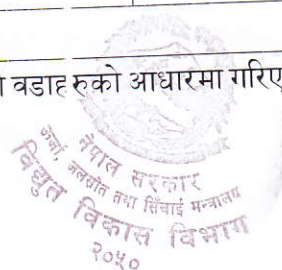 वडाहरुको आधारमा गरिए
नेपाल सरकार
ऊर्जा, जलस्रोत तथा सिँचाई मन्त्रालय
विद्युत विकास विभाग
२०५०